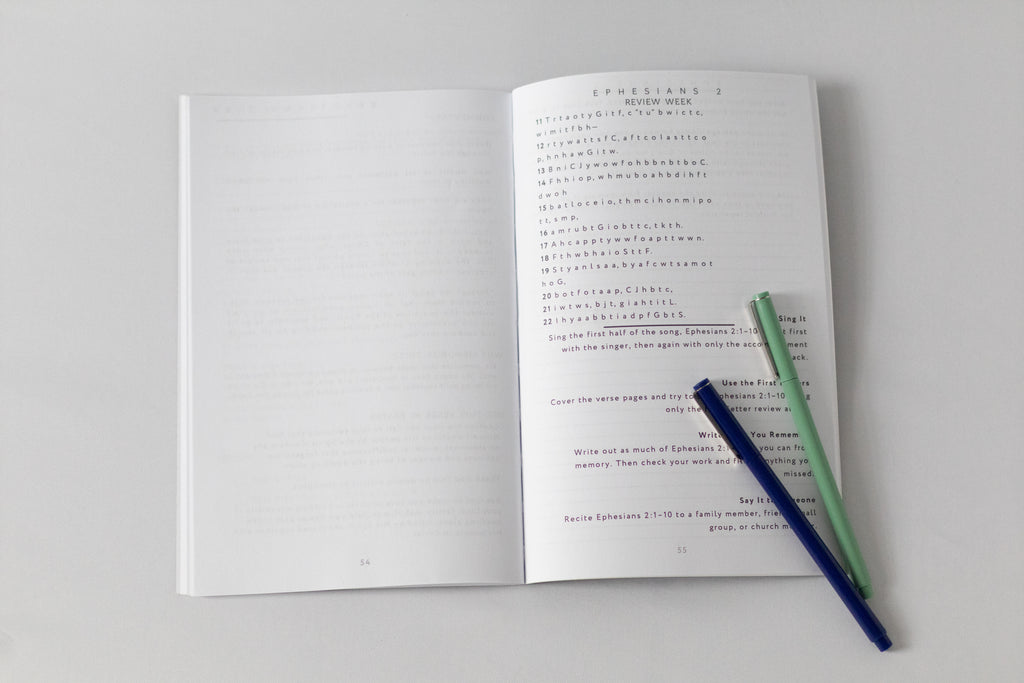 EPHESIANS 2
REVIEW WEEK
11 T r t a o t y G i t f, c "t u" b w i c t c,
w i m i t f b h—
12 r t y w a t t s f C, a f t c o l a s t t c o
p, h n h a w G i t w.
13 B n i C J y w o w f o h b b n b t b o C.
14 F h h i o p, w h m u b o a h b d i h f t
d w o h
15 b a t l o c e i o, t h m c i h o n m i p o
t t, s m p,
16 a m r u b t G i o b t t c, t k t h.
17 A h c a p p t y w w f o a p t t w w n.
18 F t h w b h a i o S t t F.
19 S t y a n l s a a, b y a f c w t s a m o t
h o G,
20 b o t f o t a a p, C J h b t c,
21 i w t w s, b j t, g i a h t i t L.
22 I h y a a b b t i a d p f G b t S.
Sing It
Sing the first half of the song, Ephesians 2:1-10 first
with the singer, then again with only the
Use the First
Cover the verse pages and try to
only the letter review
You
Write out as much of Ephesians 2: you can
memory. Then check your work and
missed.
Say It
Recite Ephesians 2:1-10 to a family member,
group, or church
54
55